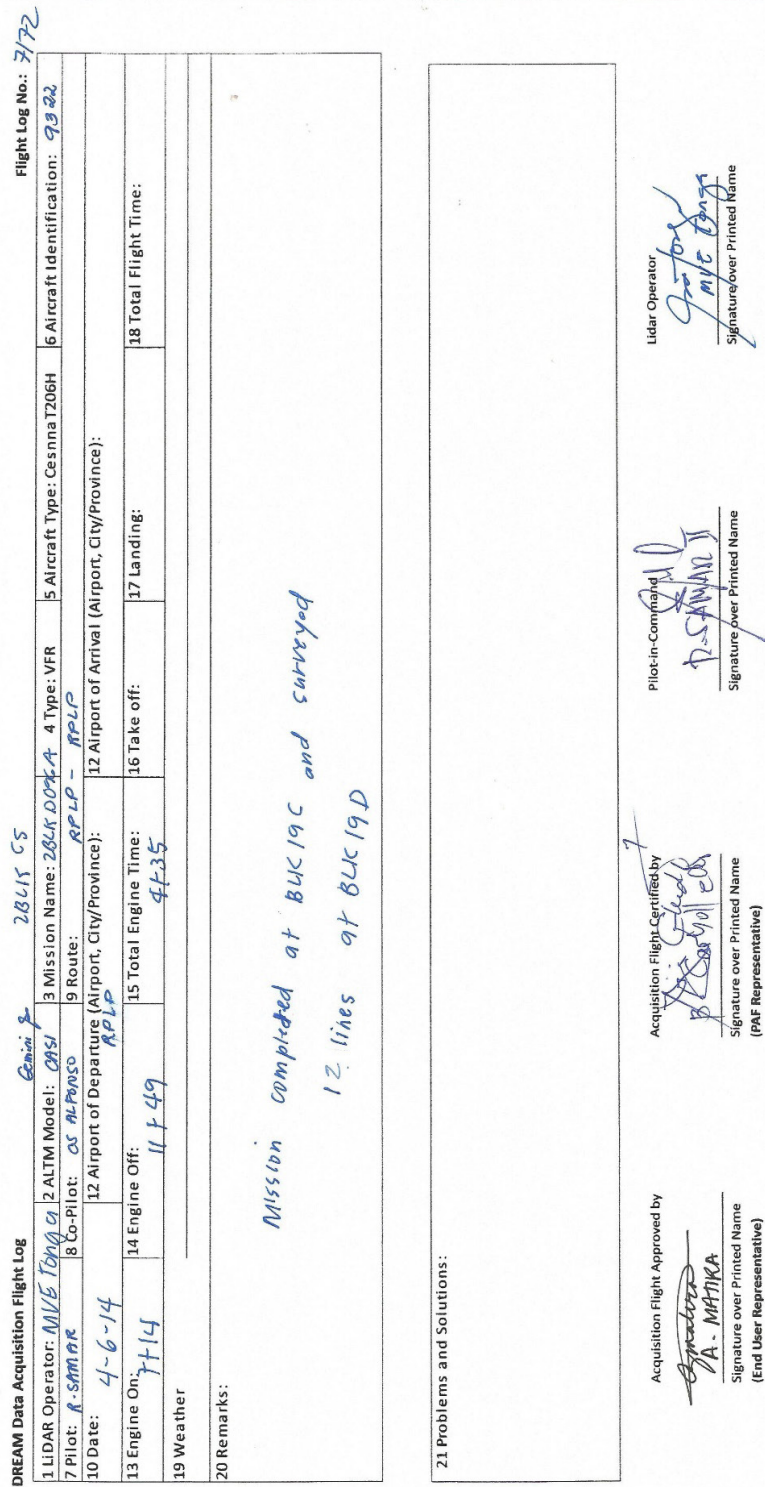 DREAM Data Acquisition Flight Log
Flight Log No.: 7172
Gemini
1 LiDAR Operator: MVE Tonga
2 ALTM Model: CASI
3 Mission Name:
4 Type: VFR
5 Aircraft Type: Cesnna T206H
6 Aircraft Identification: 9322
7 Pilot: R. SAMAR
8 Co-Pilot: OS ALFONSO
9 Route: RPLP - RPLP
10 Date: 4-6-14
12 Airport of Departure (Airport, City/Province): RPLP
12 Airport of Arrival (Airport, City/Province):
13 Engine On: 7+14
14 Engine Off: 11+49
15 Total Engine Time: 4+35
16 Take off:
17 Landing:
18 Total Flight Time:
19 Weather
20 Remarks:
Mission completed at BLK 19C and surveyed
12 lines at BLK 19D
21 Problems and Solutions:
Acquisition Flight Approved by
A. MATIRA
Signature over Printed Name
(End User Representative)
Acquisition Flight Certified by
Signature over Printed Name
(PAF Representative)
Pilot-in-Command
R. SAMAR II
Signature over Printed Name
Lidar Operator
MVE Tonga
Signature over Printed Name